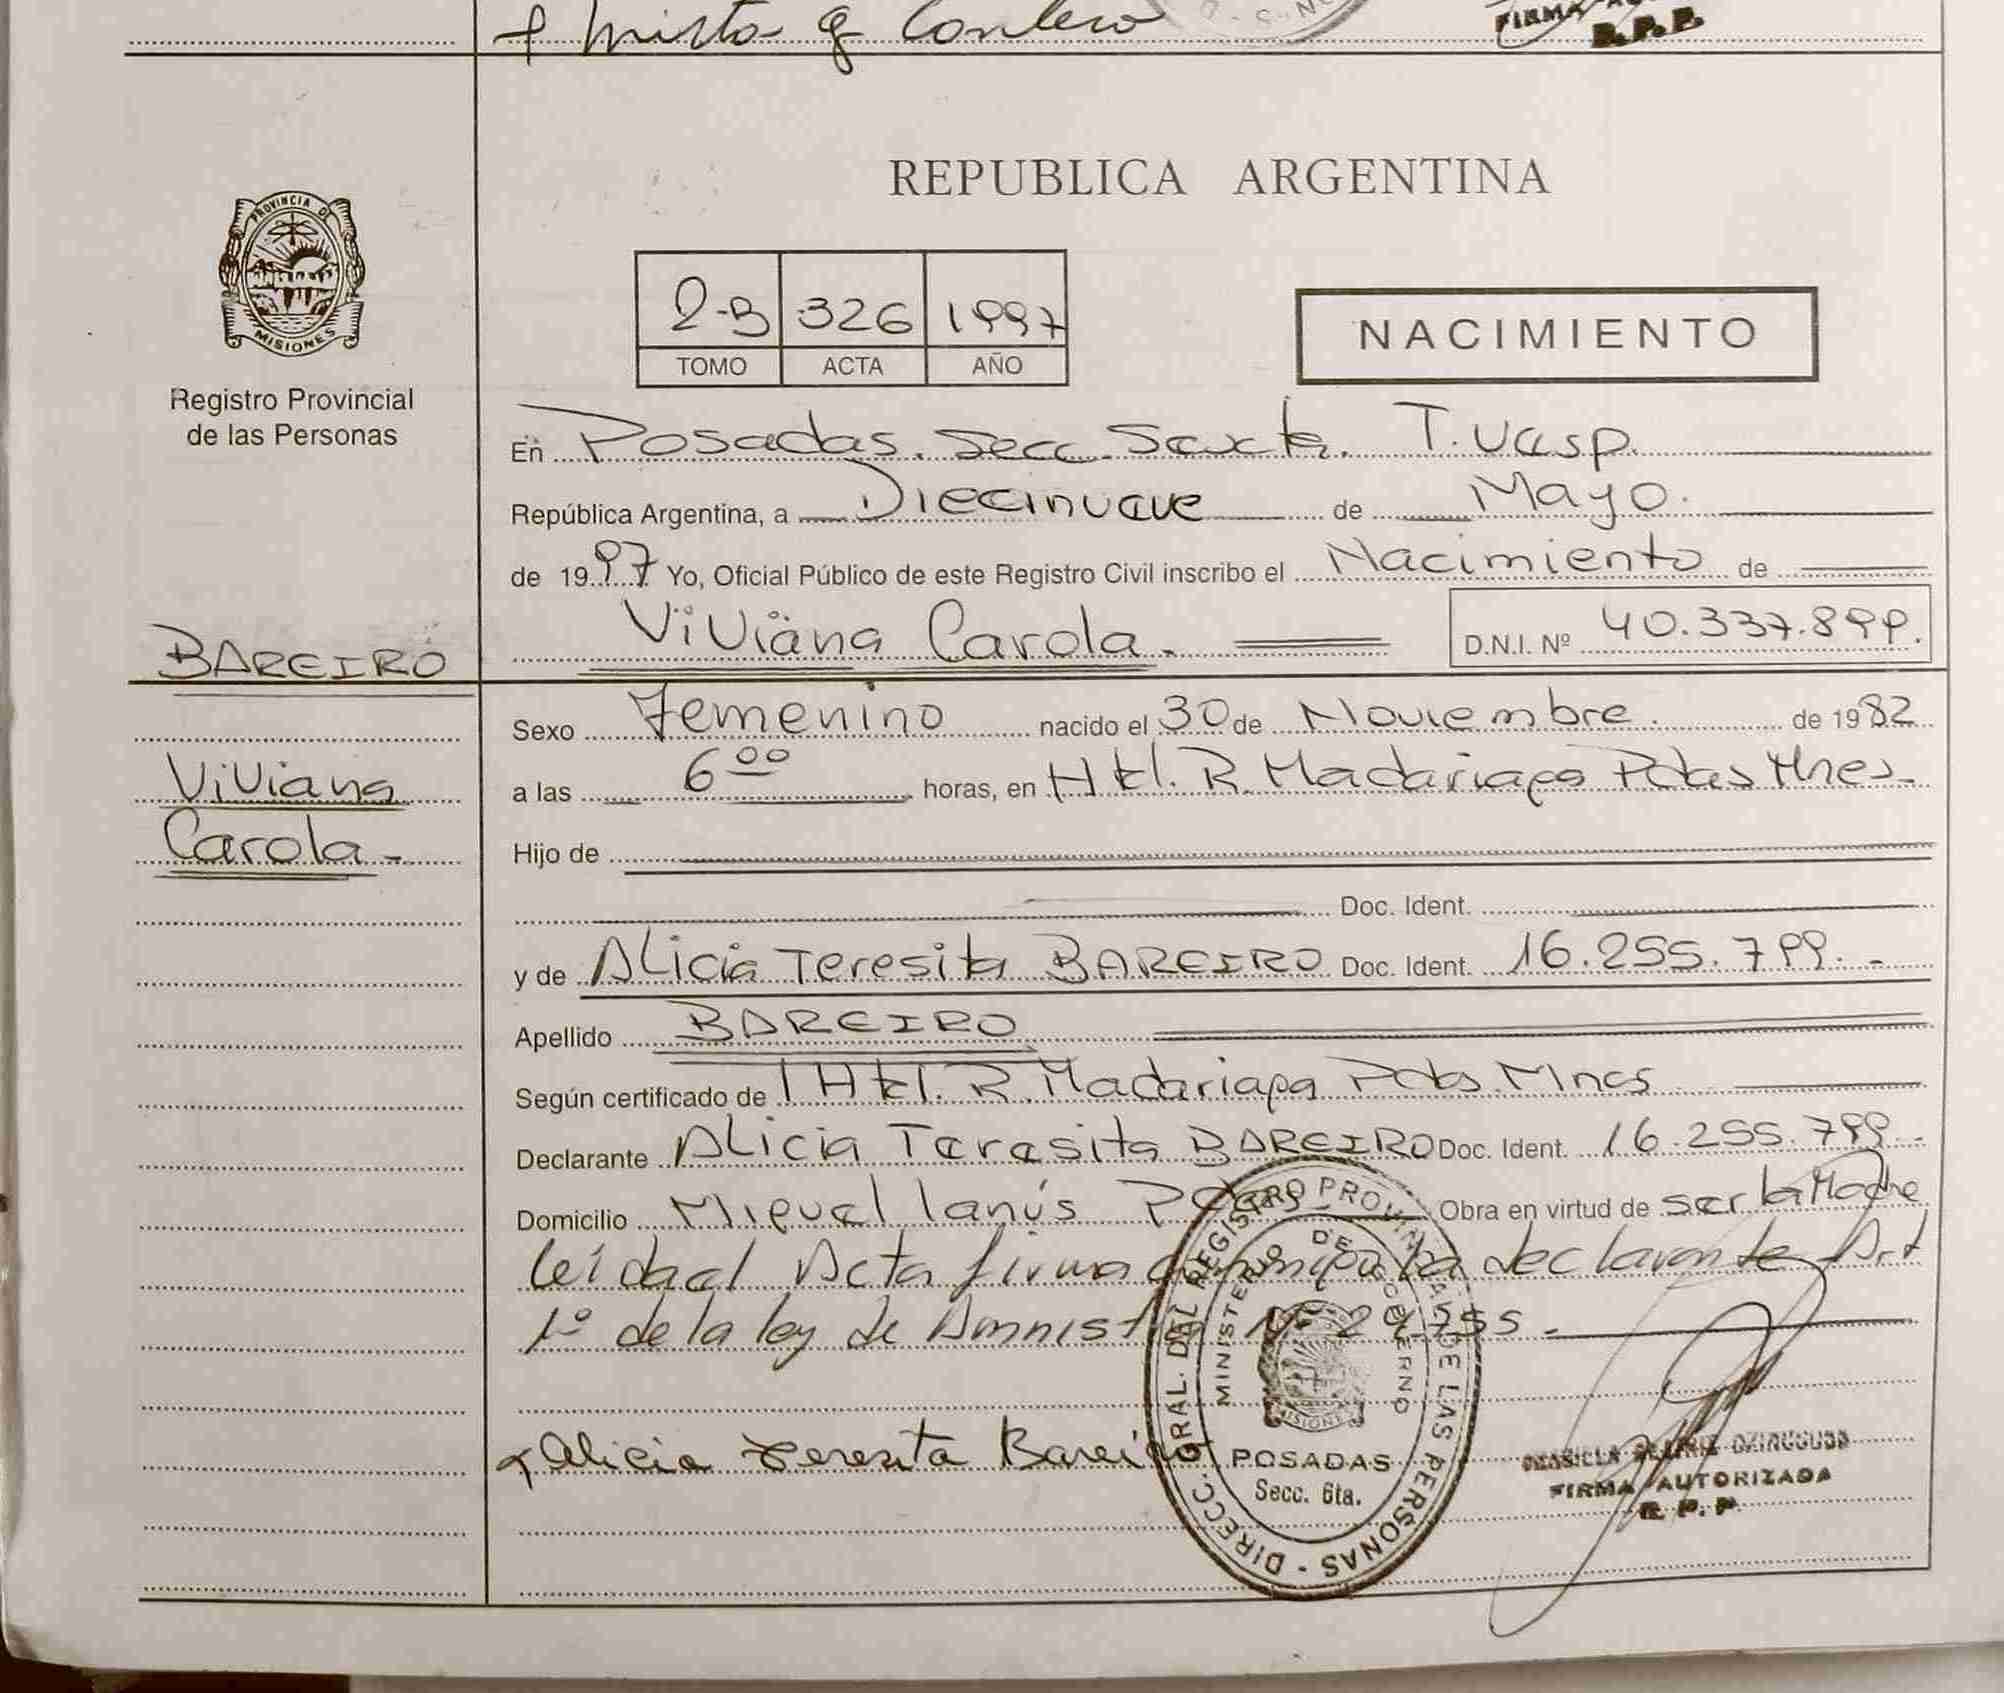 FIRMA
R.P.P.
PROVINCIA DE
MISIONES
Registro Provincial
de las Personas
REPUBLICA ARGENTINA
2-B 326 1997
TOMO ACTA AÑO
NACIMIENTO
En Posadas. Secc. Sexta.
República Argentina, a Diecinueve de Mayo.
de 1997 Yo, Oficial Público de este Registro Civil inscribo el Nacimiento de
Viviana Carola. D.N.I. Nº 40.337.899.
BAREIRO
Viviana
Carola.-
Sexo Femenino nacido el 30 de Noviembre. de 1982
a las 6 00 horas, en Htal. R. Madariaga Pdas Mnes.
Hijo de
Doc. Ident.
y de Alicia Teresita BAREIRO Doc. Ident. 16.255.799.-
Apellido BAREIRO
Según certificado de Htal. R. Madariaga Pdas. Mnes
Declarante Alicia Teresita BAREIRO Doc. Ident. 16.255.799.-
Domicilio Miguel Lanús Obra en virtud de ser la Madre
leída el Acta firma la declarante Art
1º de la ley de Amnistía Nº 755.-
Alicia Teresita Bareiro
DIRECC. GRAL. DEL REGISTRO PROVINCIAL DE LAS PERSONAS -
MINISTERIO DE GOBIERNO
MISIONES
POSADAS
Secc. 6ta.
FIRMA AUTORIZADA
R.P.P.